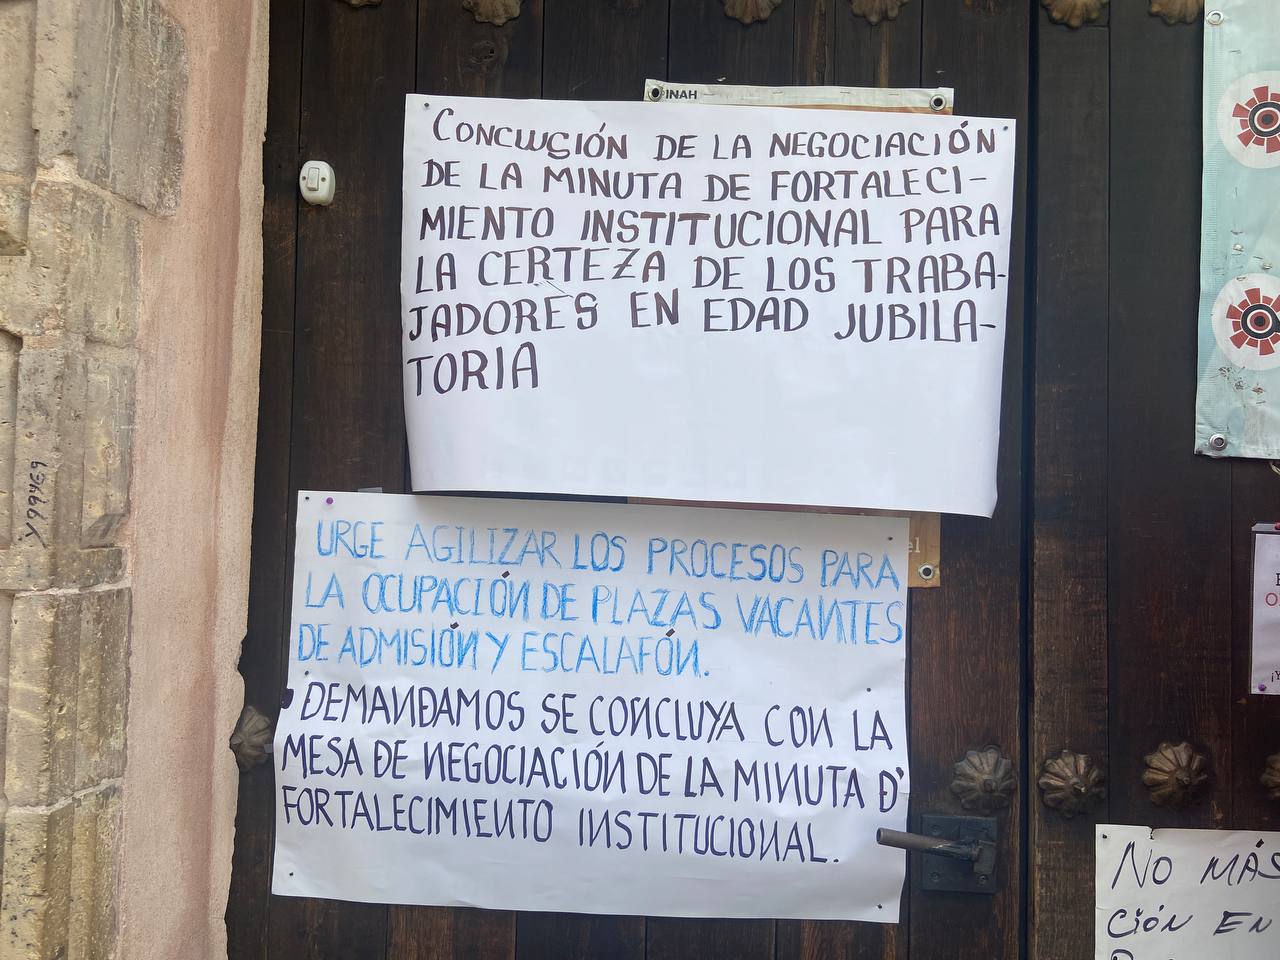 INAH
CONCLUSIÓN DE LA NEGOCIACIÓN
DE LA MINUTA DE FORTALECI-
MIENTO INSTITUCIONAL PARA
LA CERTEZA DE LOS TRABA-
JADORES EN EDAD JUBILA-
TORIA
el
URGE AGILIZAR LOS PROCESOS PARA
LA OCUPACIÓN DE PLAZAS VACANTES
DE ADMISIÓN Y ESCALAFÓN.
DEMANDAMOS SE CONCLUYA CON LA
MESA DE NEGOCIACIÓN DE LA MINUTA D'
FORTALECIMIENTO INSTITUCIONAL.
NO MÁS
CIÓN EN